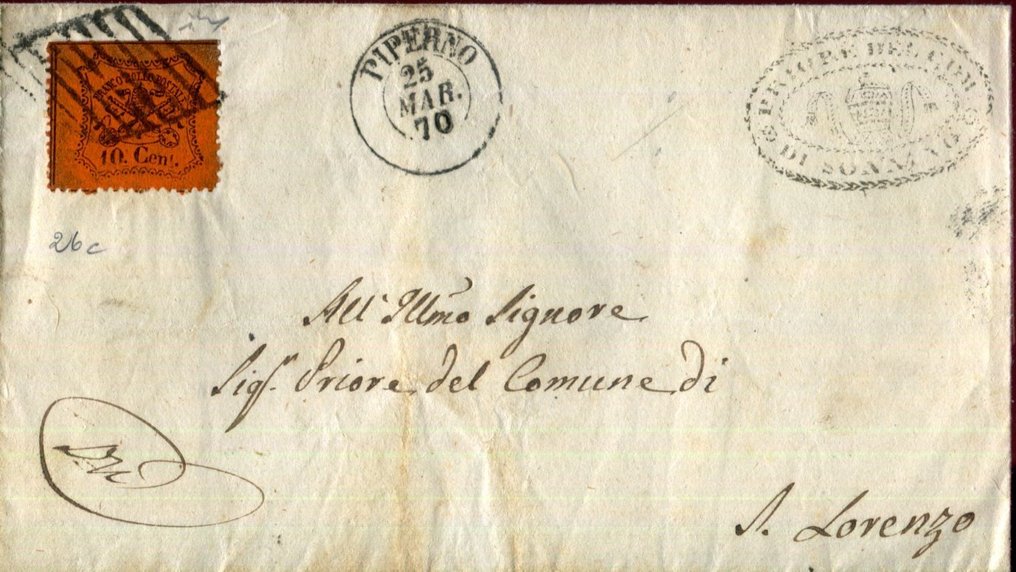 FRANCO BOLLO POSTALE
10. Cent.
PIPERNO
25
MAR.
70
PRIORE DEL COM
DI SONNINO
26 c
All' Illmo Signore
Sig. Priore del Comune di
S. Lorenzo